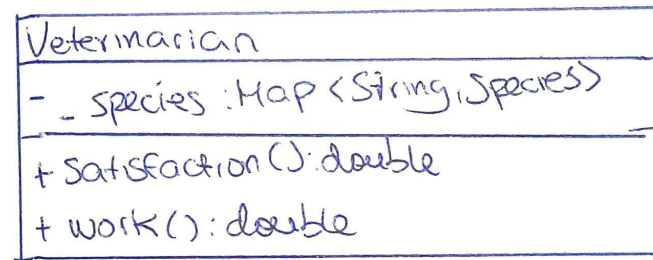 Veterinarian
- _species : Map<String, Species>
+ satisfaction(): double
+ work(): double